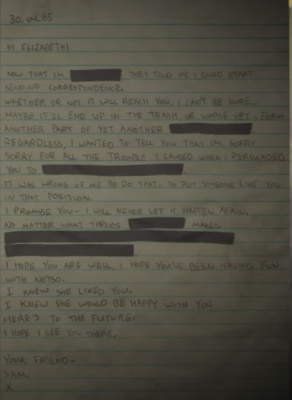 30.04.85
HI ELIZABETH!
NOW THAT I'M THEY TOLD ME I COULD START
SENDING CORRESPONDENCE.
WHETHER OR NOT IT WILL REACH YOU, I CAN'T BE SURE.
MAYBE IT'LL END UP IN THE TRASH, OR WORSE YET, FORM
ANOTHER PART OF YET ANOTHER
REGARDLESS, I WANTED TO TELL YOU THAT I'M SORRY.
SORRY FOR ALL THE TROUBLE I CAUSED WHEN I PERSUADED
YOU TO
IT WAS WRONG OF ME TO DO THAT. TO PUT SOMEONE LIKE YOU
IN THAT POSITION.
I PROMISE YOU - I WILL NEVER LET IT HAPPEN AGAIN.
NO MATTER WHAT THREATS MAKES.
I HOPE YOU ARE WELL. I HOPE YOU'VE BEEN HAVING FUN
WITH
I KNEW SHE LIKED YOU.
I KNEW SHE WOULD BE HAPPY WITH YOU
HERE'S TO THE FUTURE.
I HOPE I SEE YOU THERE.
YOUR FRIEND -
SAM.
X